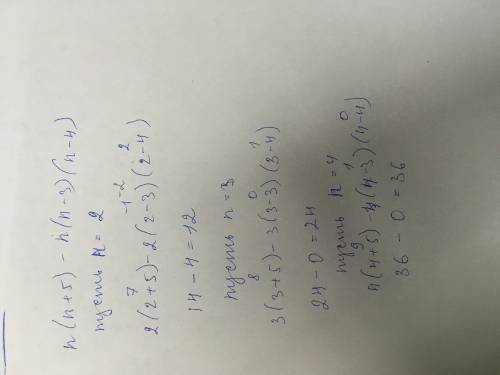 n(n+5) - n(n-3)(n-4)
пусть n = 2
7 -1 -2 2
2(2+5) - 2(2-3)(2-4)
14 - 4 = 12
пусть n = 3
8 0 1
3(3+5) - 3(3-3)(3-4)
24 - 0 = 24
пусть n = 4
9 1 0
4(4+5) - 4(4-3)(4-4)
36 - 0 = 36